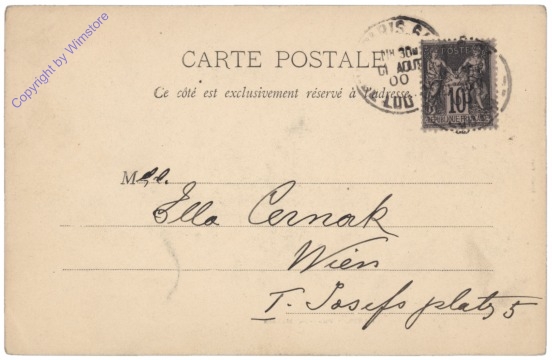 Copyright by Wimstore
CARTE POSTALE
Ce côté est exclusivement réservé à l'adresse
POSTES
10
REPUBLIQUE FRANÇAISE
PARIS
1 AOUT
00
Mll.
Ella Cernak
Wien
I. Josefs platz 5